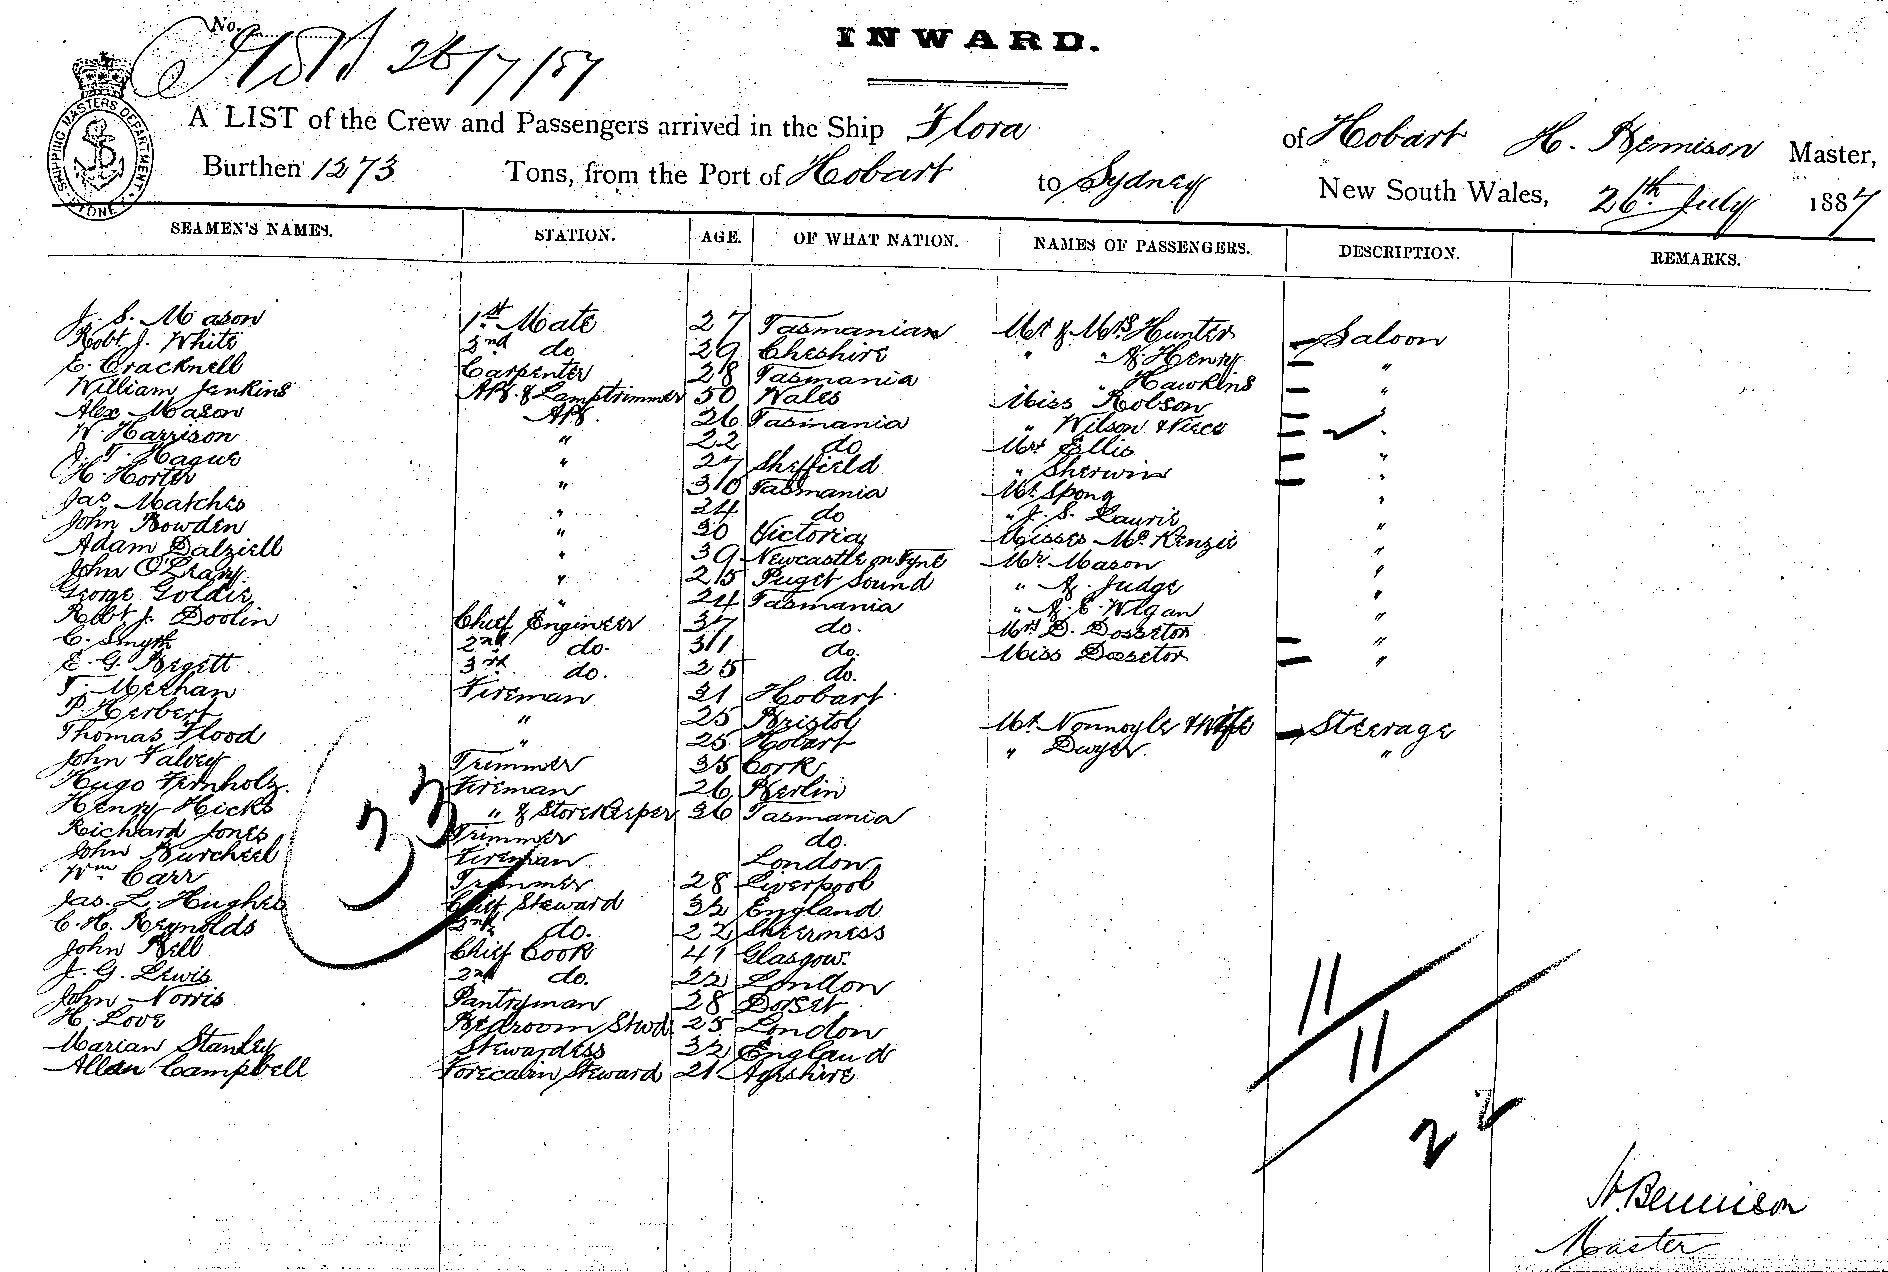 No.
26/7/87
INWARD.
SHIPPING MASTERS DEPARTMENT SYDNEY
A LIST of the Crew and Passengers arrived in the Ship Flora of Hobart H. Bennison Master,
Burthen 1273 Tons, from the Port of Hobart to Sydney New South Wales, 26th July 1887
SEAMEN'S NAMES. STATION. AGE. OF WHAT NATION. NAMES OF PASSENGERS. DESCRIPTION. REMARKS.
J. S. Mason 1st Mate 27 Tasmanian Mr & Mrs Hunter Saloon
Robt J. White 2nd do 29 Cheshire " " A. Henry "
E. Cracknell Carpenter 28 Tasmania " Hawkins "
William Jenkins AB. & Lamptrimmer 50 Wales Miss Robson "
Alex Mason AB. 26 Tasmania " Wilson & Niece "
W. Harrison " 22 do Mrs Ellis "
J. T. Hague " 27 Sheffield " Sherwin "
H. Horter " 30 Tasmania Mr Spong "
Jas Matches " 24 do " J. S. Laurie "
John Bowden " 30 Victoria Misses McKenzie "
Adam Dalziell " 39 Newcastle on Tyne Mr Mason "
John O'Leary " 25 Puget Sound " A. Judge "
George Goldie " 24 Tasmania " A. E. Wigan "
Robt J. Doolin Chief Engineer 37 do. Mrs D. Dossetor "
C. Smyth 2nd do. 31 do. Miss Dossetor "
E. G. Pigett 3rd do. 25 do.
T. Meehan Fireman 21 Hobart
P. Herbert " 25 Bristol Mr Nonnoyle & Wife Steerage
Thomas Flood " 25 Hobart " Dwyer "
John Falvey Trimmer 35 Cork
Hugo Firnholz. Fireman 26 Berlin
Henry Hicks " & Storekeeper 36 Tasmania
Richard Jones Trimmer do.
John Burchell Fireman London
Wm Carr Trimmer 28 Liverpool
Jas. L. Hughes Chief Steward 32 England
C. H. Reynolds 2nd do. 22 Sheerness
John Bell Chief Cook 41 Glasgow.
J. G. Lewis 2nd do. 22 London
John Norris Pantryman 28 Dorset
H. Love Bedroom Stwd 25 London
Marian Stanley Stewardess 32 England
Allan Campbell Forecabin Steward 21 Ayrshire
33
11
11
22
H. Bennison
Master